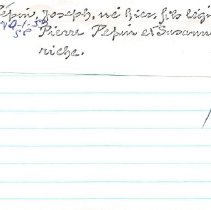 Pépin, Joseph, né hier, fils légi
Pierre Pepin et Susann
riche.